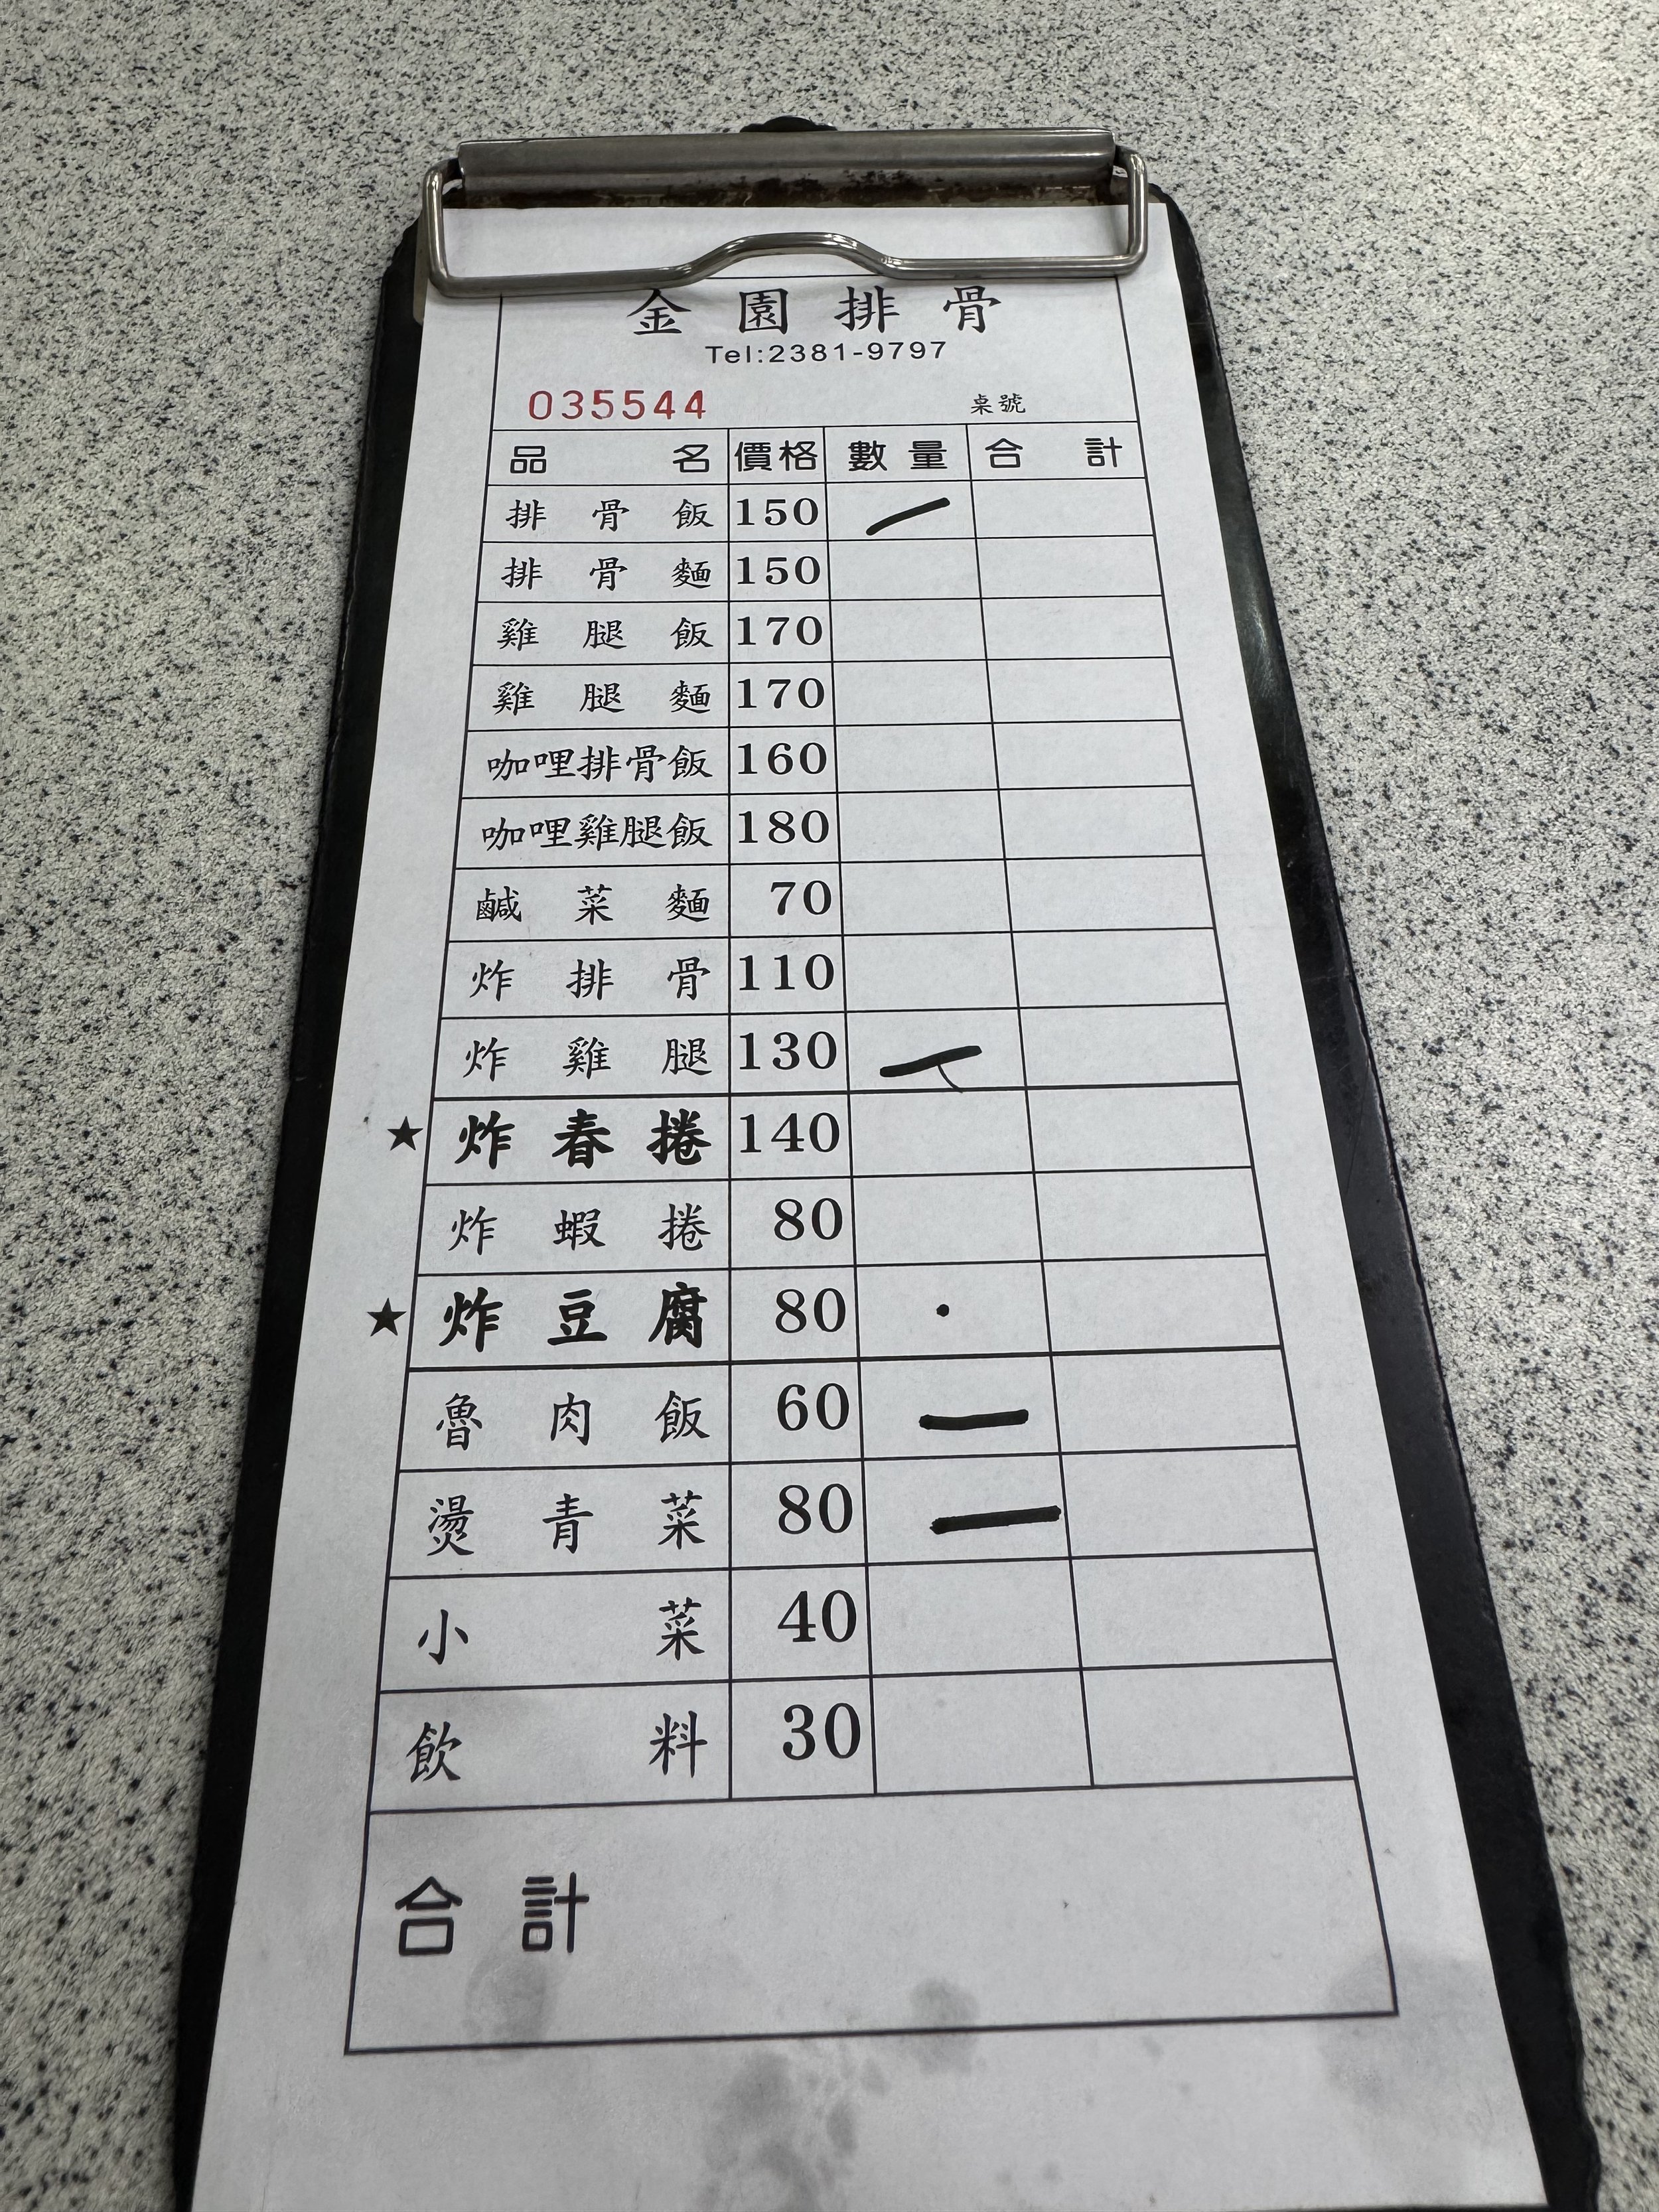 金園排骨
Tel:2381-9797
035544 桌號
品名 價格 數量 合計
排骨飯 150 一
排骨麵 150
雞腿飯 170
雞腿麵 170
咖哩排骨飯 160
咖哩雞腿飯 180
鹹菜麵 70
炸排骨 110
炸雞腿 130 一
★ 炸春捲 140
炸蝦捲 80
★ 炸豆腐 80
魯肉飯 60 一
燙青菜 80 一
小菜 40
飲料 30
合計